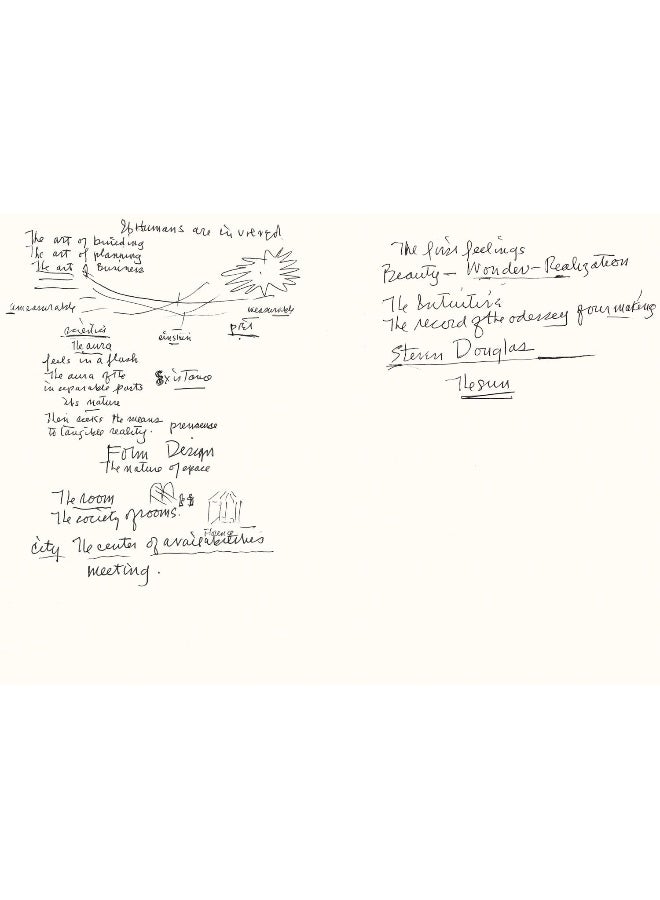 Humans are in
The art of building
The art of planning
The art of Business
measurable
unmeasurable
scientist
einstein
poet
The aura
feels in a flash
The aura of the
inseparable parts
its nature
Then seeks the means
to tangible reality. presense
Form Design
The nature of space
The room
The society of rooms.
Florence
city The center of availabilities
meeting.
The first feelings
Beauty – Wonder – Realization
The Intuitive
The record of the odessey of our making
Steven Douglas
The sun